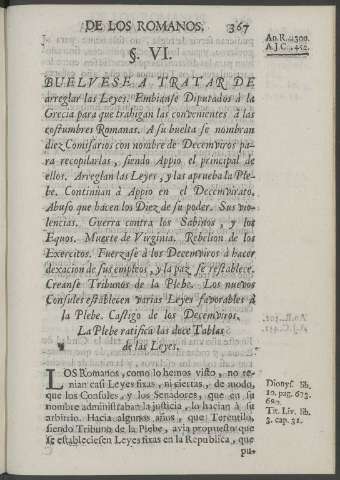 DE LOS ROMANOS. 367
An.R. 300.
A.J.C. 452.
§. VI.
BUELVESE A TRATAR DE
arreglar las Leyes. Embianse Diputados à la
Grecia para que trahigan las convenientes à las
costumbres Romanas. A su buelta se nombran
diez Comisarios con nombre de Decemviros pa-
ra recopilarlas, siendo Appio el principal de
ellos. Arreglan las Leyes, y las aprueba la Ple-
be. Continúan à Appio en el Decemvirato.
Abuso que hacen los Diez de su poder. Sus vio-
lencias. Guerra contra los Sabinos, y los
Equos. Muerte de Virginia. Rebelion de los
Exercitos. Fuerzase à los Decemviros à hacer
dexacion de sus empleos, y la paz se restablece.
Creanse Tribunos de la Plebe. Los nuevos
Consules establecen varias Leyes favorables à
la Plebe. Castigo de los Decemviros.
La Plebe ratifica las doce Tablas
de las Leyes.
LOS Romanos, como lo hemos visto, no te-
nian casi Leyes fixas, ni ciertas, de modo,
que los Consules, y los Senadores, que en su
nombre administraban la justicia, lo hacian à su
arbitrio. Hacia algunos años, que Terentilo,
siendo Tribuno de la Plebe, avia propuesto que
se estableciesen Leyes fixas en la Republica, que
pu-
Dionys. lib.
10. pag. 675.
Tit. Liv. lib.
3. cap. 31.